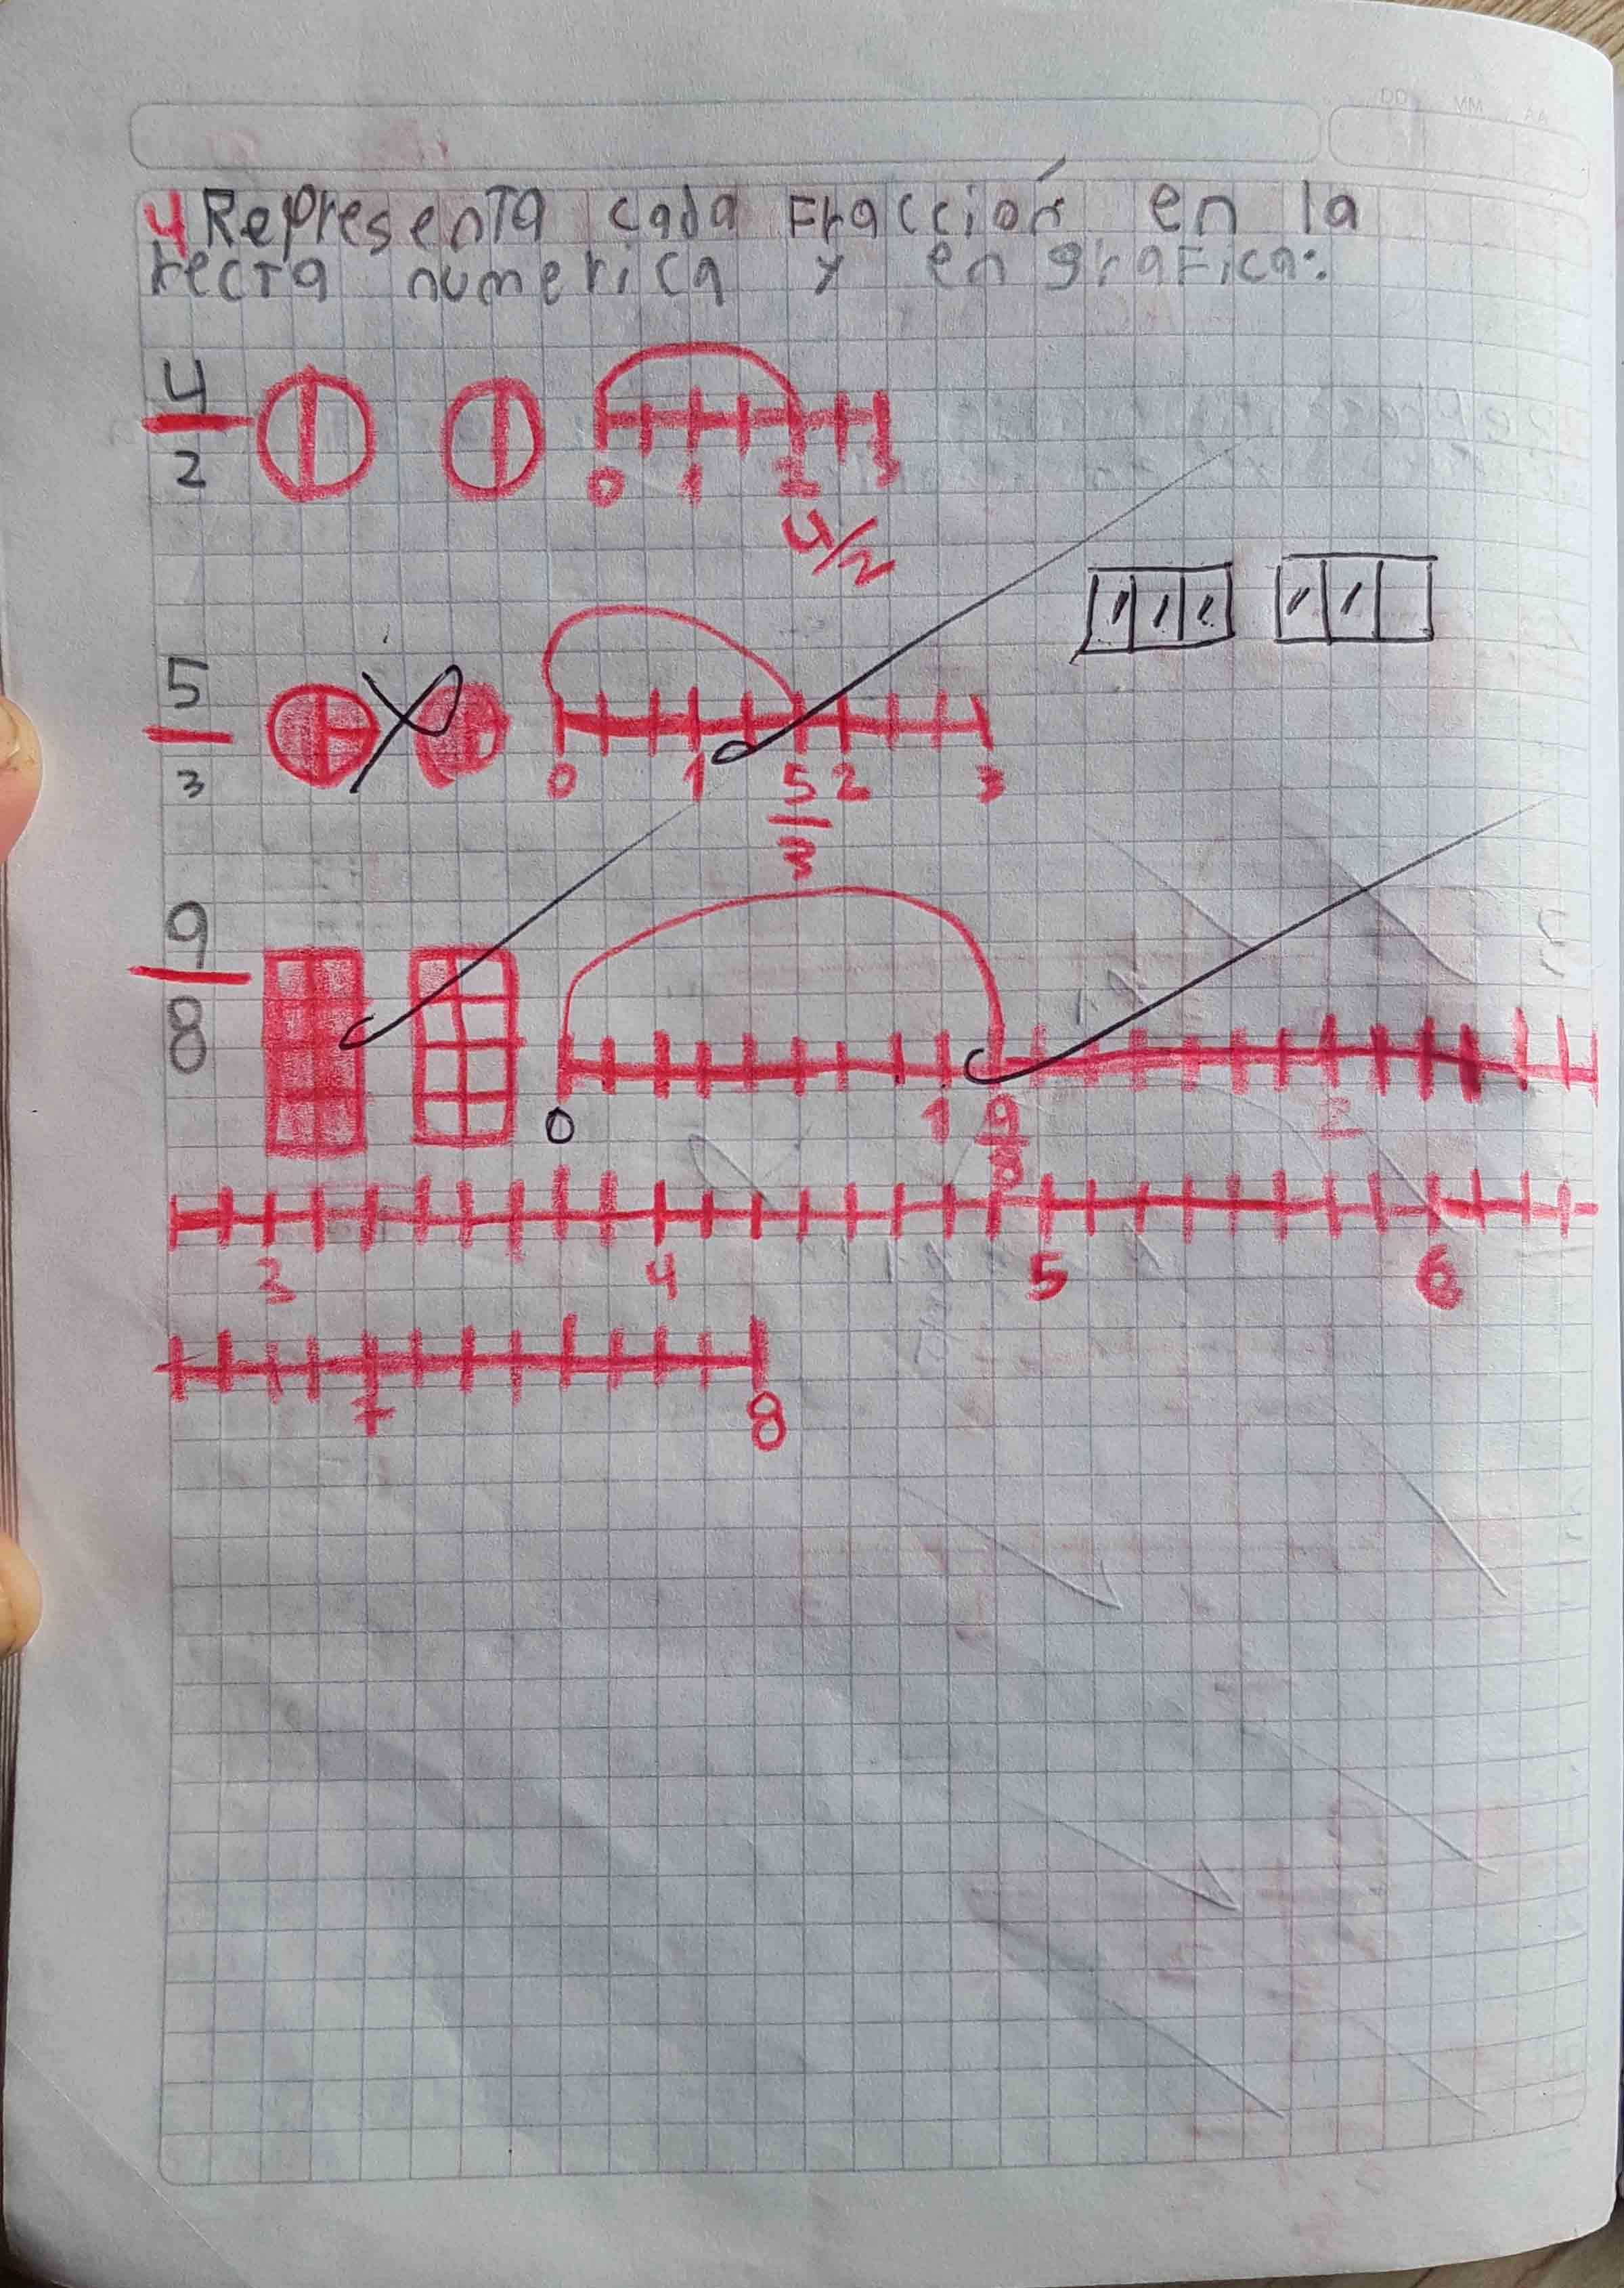 DD MM AA
4 Representa cada Fracción en la
recta numerica y en grafica:
4/2
0 1 2 3
4/2
5/3
0 1 5/3 2 3
9/8
0 1 9/8 2
3 4 5 6
7 8